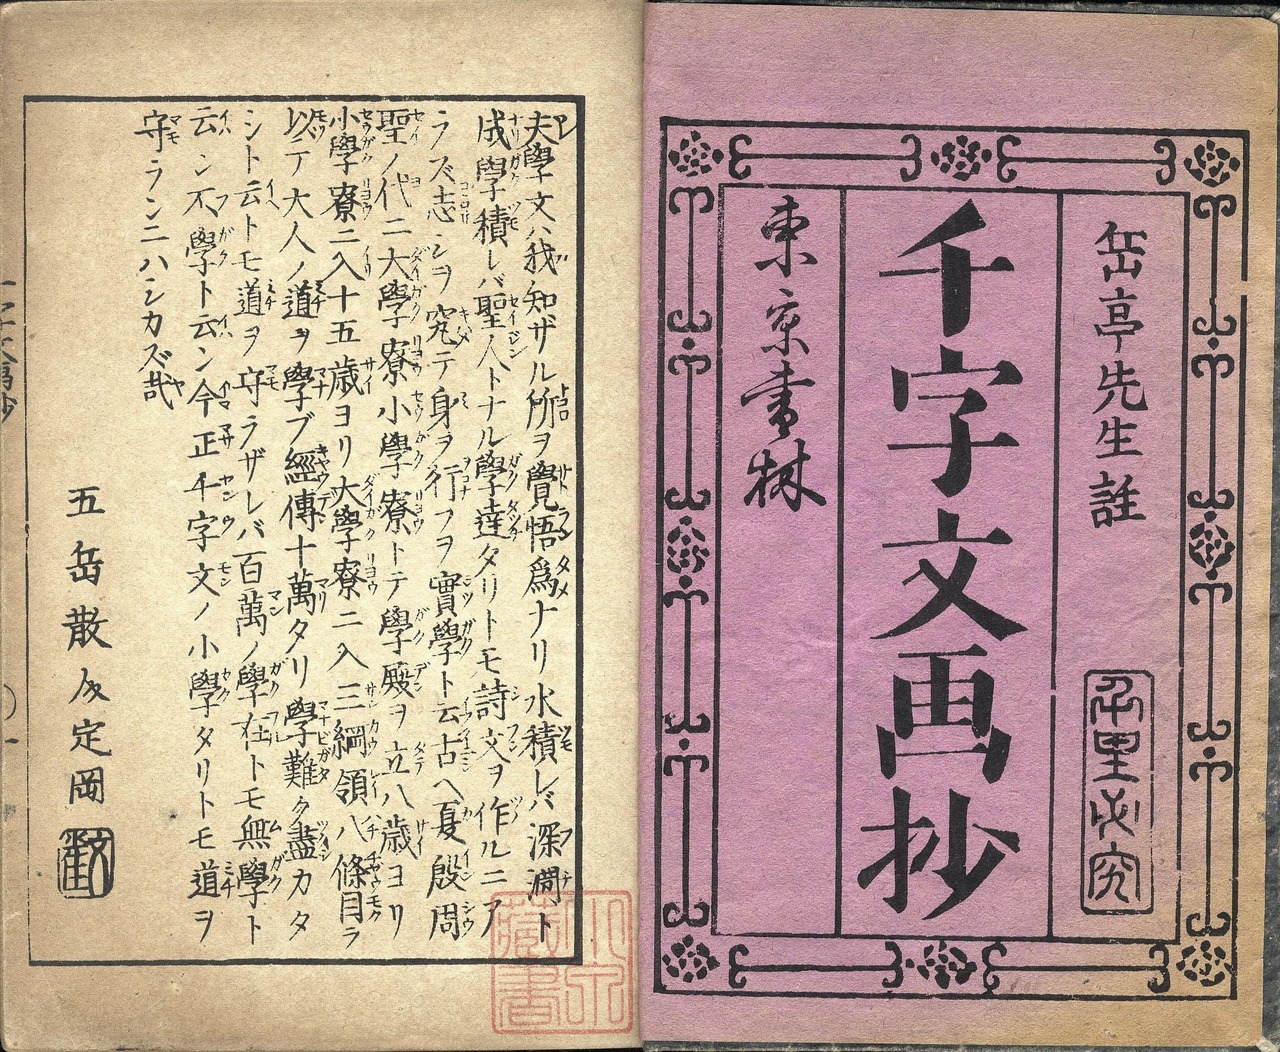 岳亭先生註
千里必究
千字文画抄
東京書林
夫學文ハ我知ザル所ヲ覺悟爲ナリ水積レバ深淵ト
成學積レバ聖人トナル學達タリトモ詩文ヲ作ルニア
ラズ志シヲ究テ身ヲ行フヲ實學ト云古ヘ夏殷周
聖ノ代ニ大學寮小學寮トテ學殿ヲ立八歳ヨリ
小學寮ニ入十五歳ヨリ大學寮ニ入三綱領八條目ラ
以テ大人ノ道ヲ學ブ經傳十萬タリ學難タ盡カタ
シト云トモ道ヲ守ラザレバ百萬ノ學在トモ無學ト
云ン不學ト云ン今正千字文ノ小學タリトモ道ヲ
守ランニハシカズ哉
五岳散人定岡
藏書